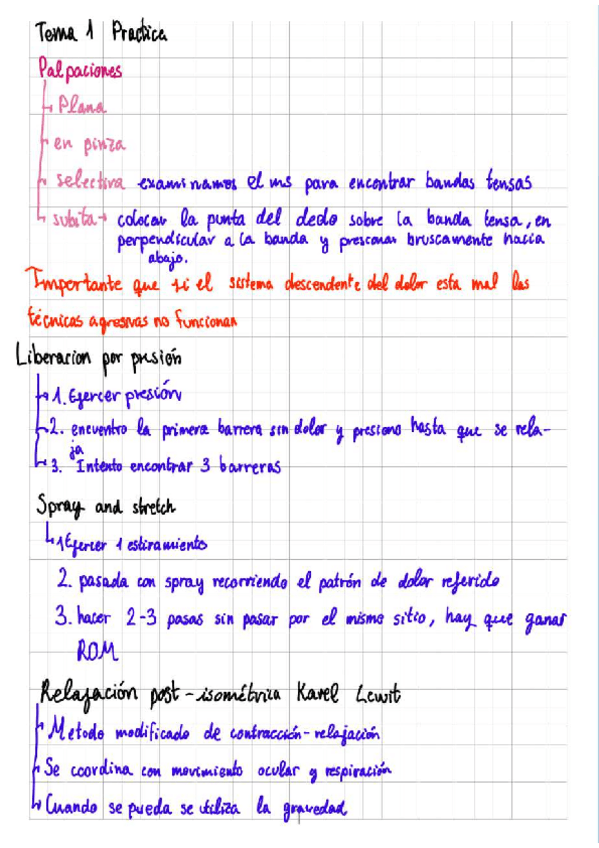 Tema 1 Practica
Palpaciones
↳ Plana
↳ en pinza
↳ selectiva examinamos el ms para encontrar bandas tensas
↳ subita → colocar la punta del dedo sobre la banda tensa, en
perpendicular a la banda y presionar bruscamente hacia
abajo.
Importante que si el sistema descendente del dolor esta mal las
técnicas agresivas no funcionan
Liberacion por presión
↳ 1. Ejercer presión
↳ 2. encuentro la primera barrera sin dolor y presiono hasta que se rela-
ja
↳ 3. Intento encontrar 3 barreras
Spray and stretch
↳ 1 Ejercer 1 estiramiento
2. pasada con spray recorriendo el patrón de dolor referido
3. hacer 2-3 pasas sin pasar por el mismo sitio, hay que ganar
ROM
Relajación post-isométrica Karel Lewit
↳ Metodo modificado de contracción-relajación
↳ Se coordina con movimiento ocular y respiración
↳ Cuando se pueda se utiliza la gravedad